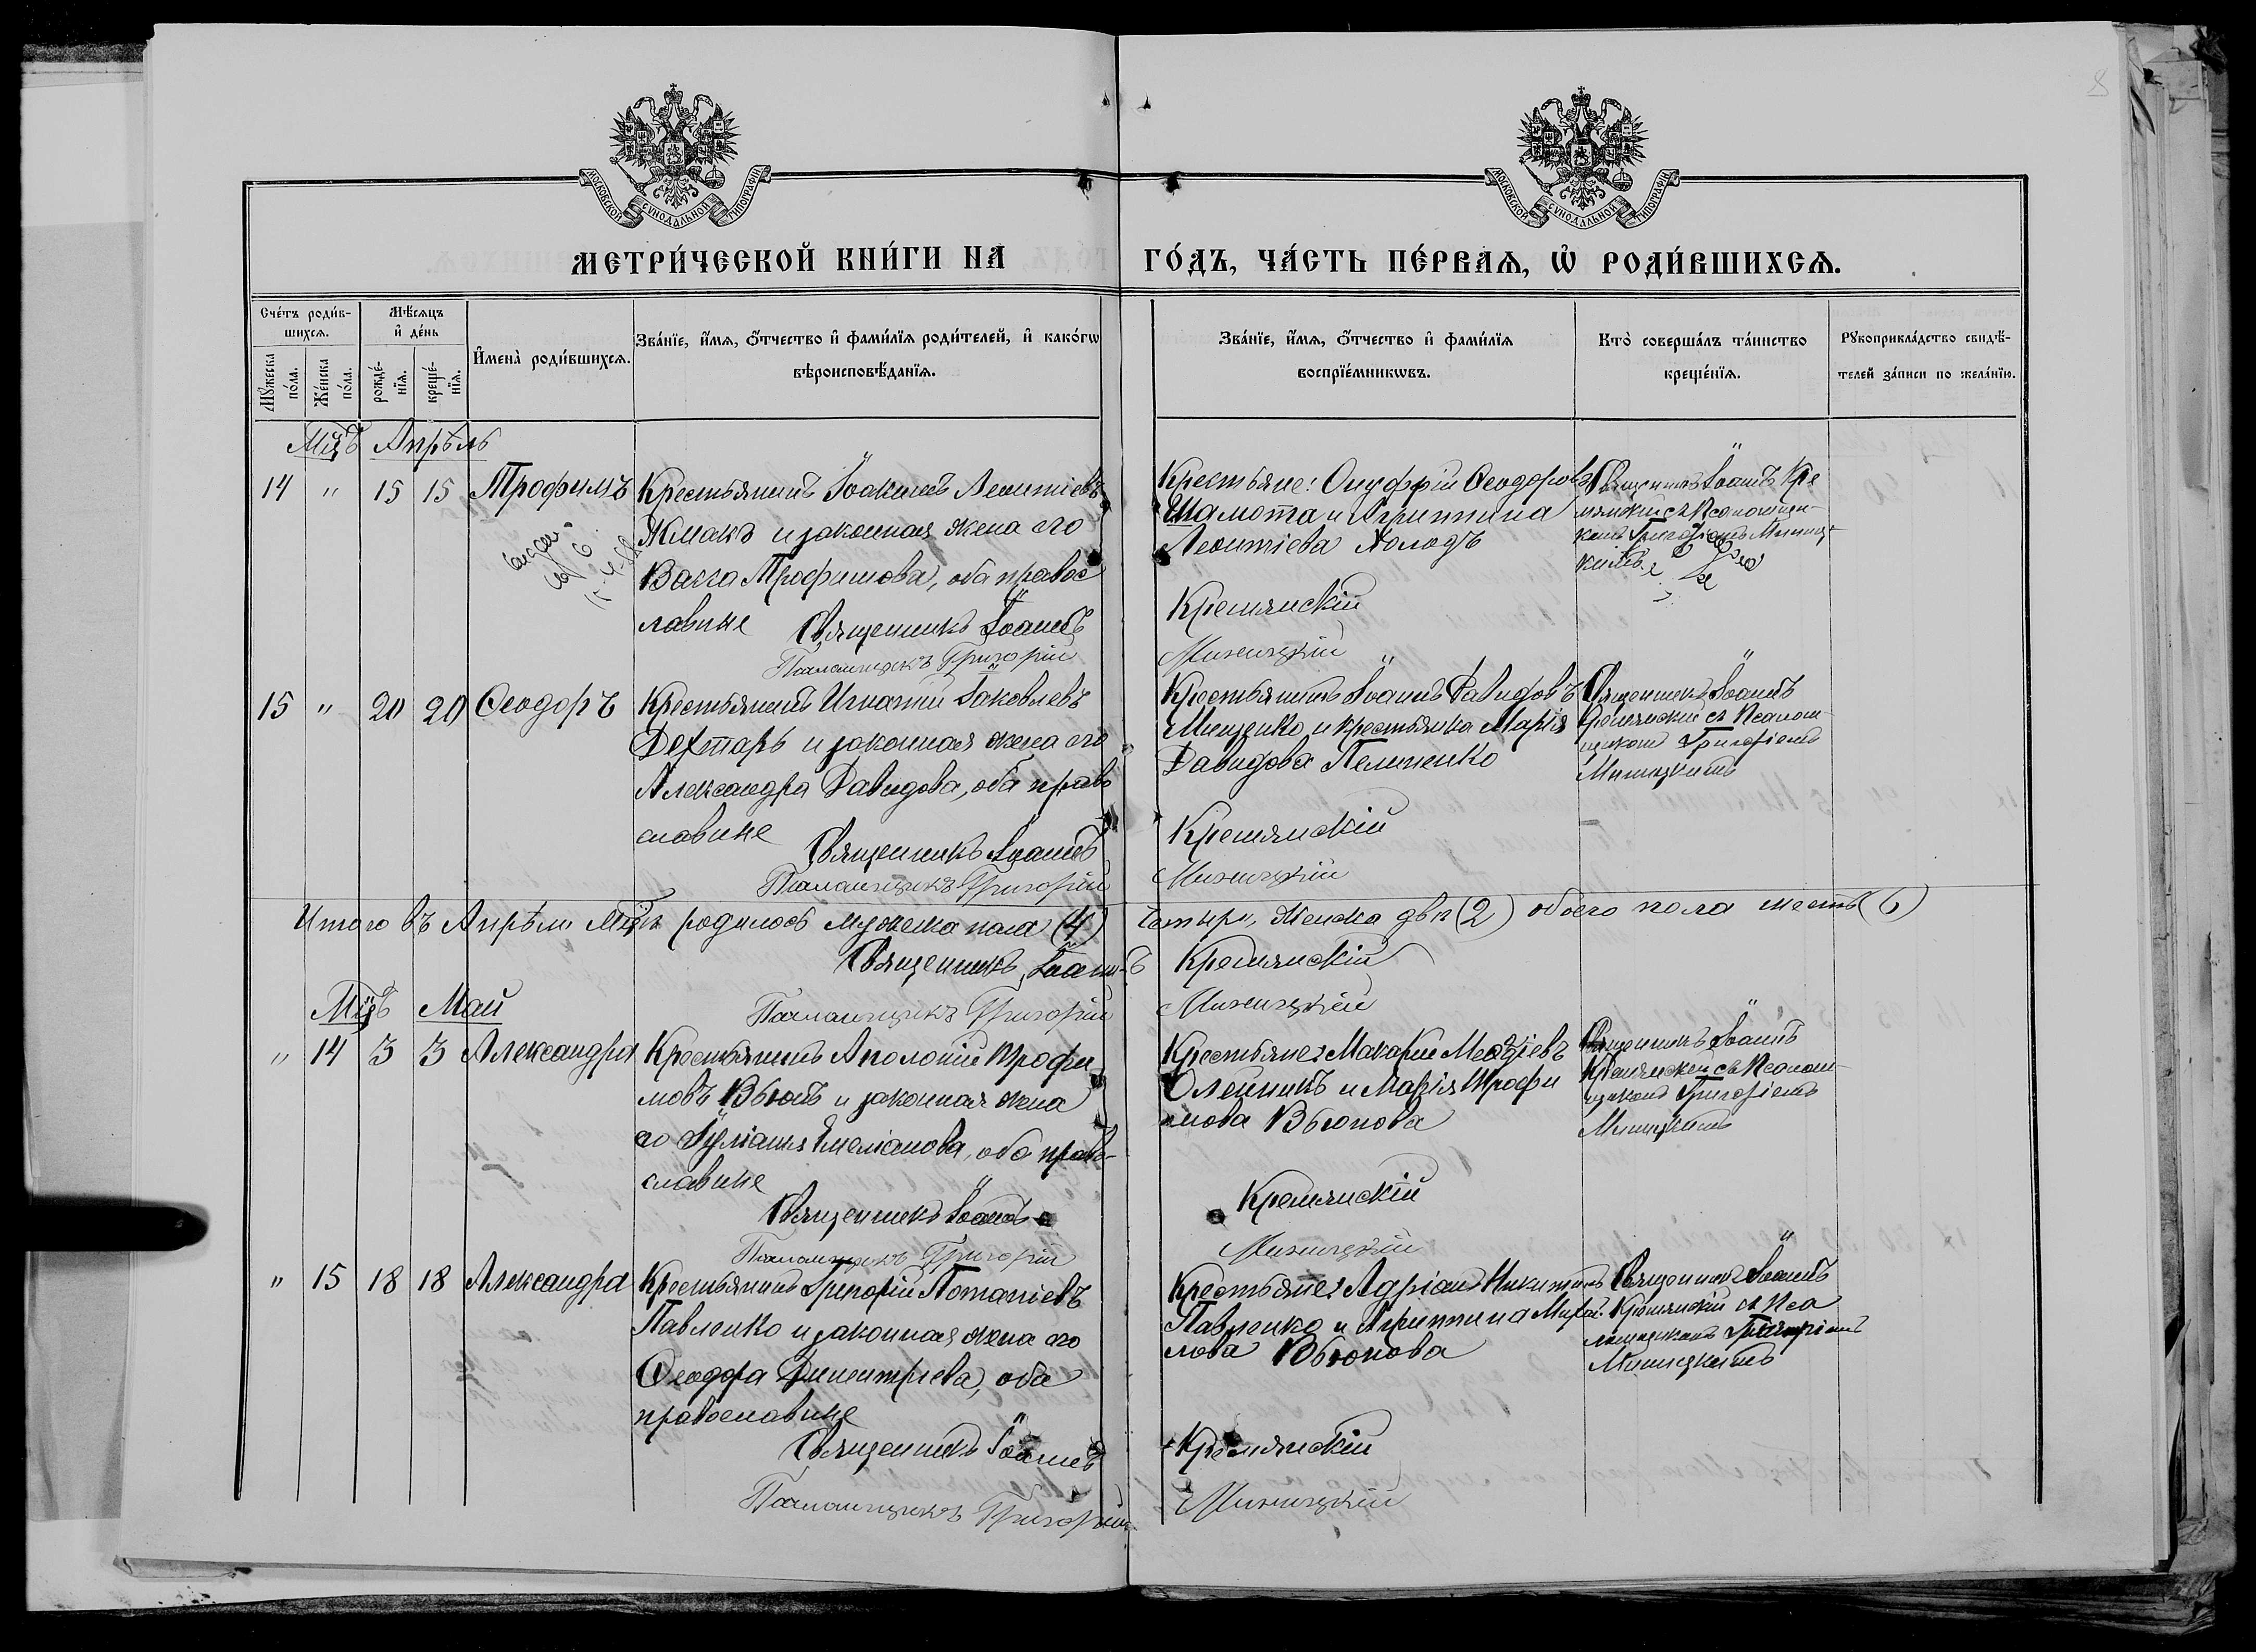 8
МОСКОВСКОЙ СУНОДАЛЬНОЙ ТИПОГРАФІИ
МОСКОВСКОЙ СУНОДАЛЬНОЙ ТИПОГРАФІИ
МЕТРИ́ЧЕСКОЙ КНИ́ГИ НА
ГО́ДЪ, ЧА́СТЬ ПЕ́РВАѦ, Ѡ҆ РОДИ́ВШИХСѦ.
Сче́тъ роди́в-
шихсѧ.
Мꙋжеска по́ла.
Же́нска по́ла.
Мѣ́сѧцъ
и҆ де́нь
рожде́-
нїѧ.
креще́-
нїѧ.
И҆мена̀ роди́вшихсѧ.
Зва́нїе, и҆́мѧ, ѻ҆́тчество и҆ фами́лїѧ роди́телей, и҆ како́гѡ
вѣроисповѣ́данїѧ.
Зва́нїе, и҆́мѧ, ѻ҆́тчество и҆ фами́лїѧ
воспрїе́мникѡвъ.
Кто̀ соверша́лъ та́инство
креще́нїѧ.
Рꙋкоприкла́дство свидѣ́-
телей за́писи по жела́нїю.
Мц̃ъ Апрѣль
14 " 15 15 Трофимъ
Крестьянинъ Іоакимъ Леонтіевъ
Жмакъ и законная жена его
Васса Трофимова, оба правос
лавные
Священникъ Іоаннъ
Псаломщикъ Григорій
Крестьяне: Онуфрій Ѳеодоровъ
Шамота и Агриппина
Леонтіева Холодъ
Кремянскій
Миницкій
Священникъ Іоаннъ Кре
мянскій съ Псаломщи-
комъ Григоріемъ Миниц-
кимъ.
15 " 20 20 Ѳеодоръ
Крестьянинъ Игнатій Іаковлевъ
Дехтарь и законная жена его
Александра Давидова, оба право
славные
Священникъ Іоаннъ
Псаломщикъ Григорій
Крестьянинъ Іоаннъ Давидовъ
Мищенко и крестьянка Марія
Давидова Пелипенко
Кремянскій
Миницкій
Священникъ Іоаннъ
Кремянскій съ Псалом-
щикомъ Григоріемъ
Миницкимъ
Итого въ Апрѣлѣ Мц̃ѣ родилось мужеска пола (4) четыре, женска двѣ (2) обоего пола шесть (6)
Священникъ Іоаннъ Кремянскій
Псаломщикъ Григорій Миницкій
Мц̃ъ Май
" 14 3 3 Александра
Крестьянинъ Аполоній Трофи
мовъ Вьюнъ и законная жена
его Іуліанія Емеліанова, оба право-
славные
Священникъ Іоаннъ
Псаломщикъ Григорій
Крестьяне: Макарій
Олейникъ и Марія Трофи
мова Вьюнова
Кремянскій
Миницкій
Священникъ Іоаннъ
Кремянскій съ Псалом-
щикомъ Григоріемъ
Миницкимъ
" 15 18 18 Александра
Крестьянинъ Григорій Потапіевъ
Павленко и законная жена его
Ѳеодора Димитріева, оба
православные
Священникъ Іоаннъ
Псаломщикъ Григорій
Крестьяне: Адріанъ Никитинъ
Павленко и Агриппина Михай-
лова Вьюнова
Кремянскій
Миницкій
Священникъ Іоаннъ
Кремянскій съ Пса
ломщикомъ Григоріемъ
Миницкимъ